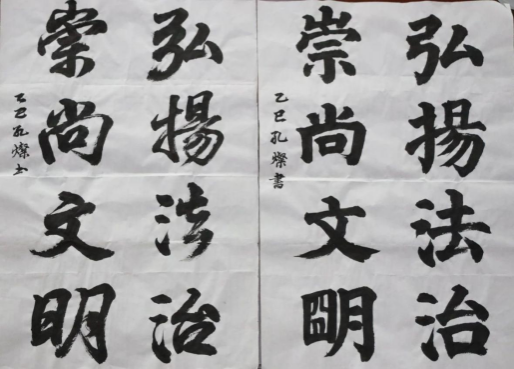 弘揚法治
崇尚文朙
乙巳孔燦書
弘揚法治
崇尚文明
乙巳孔燦书